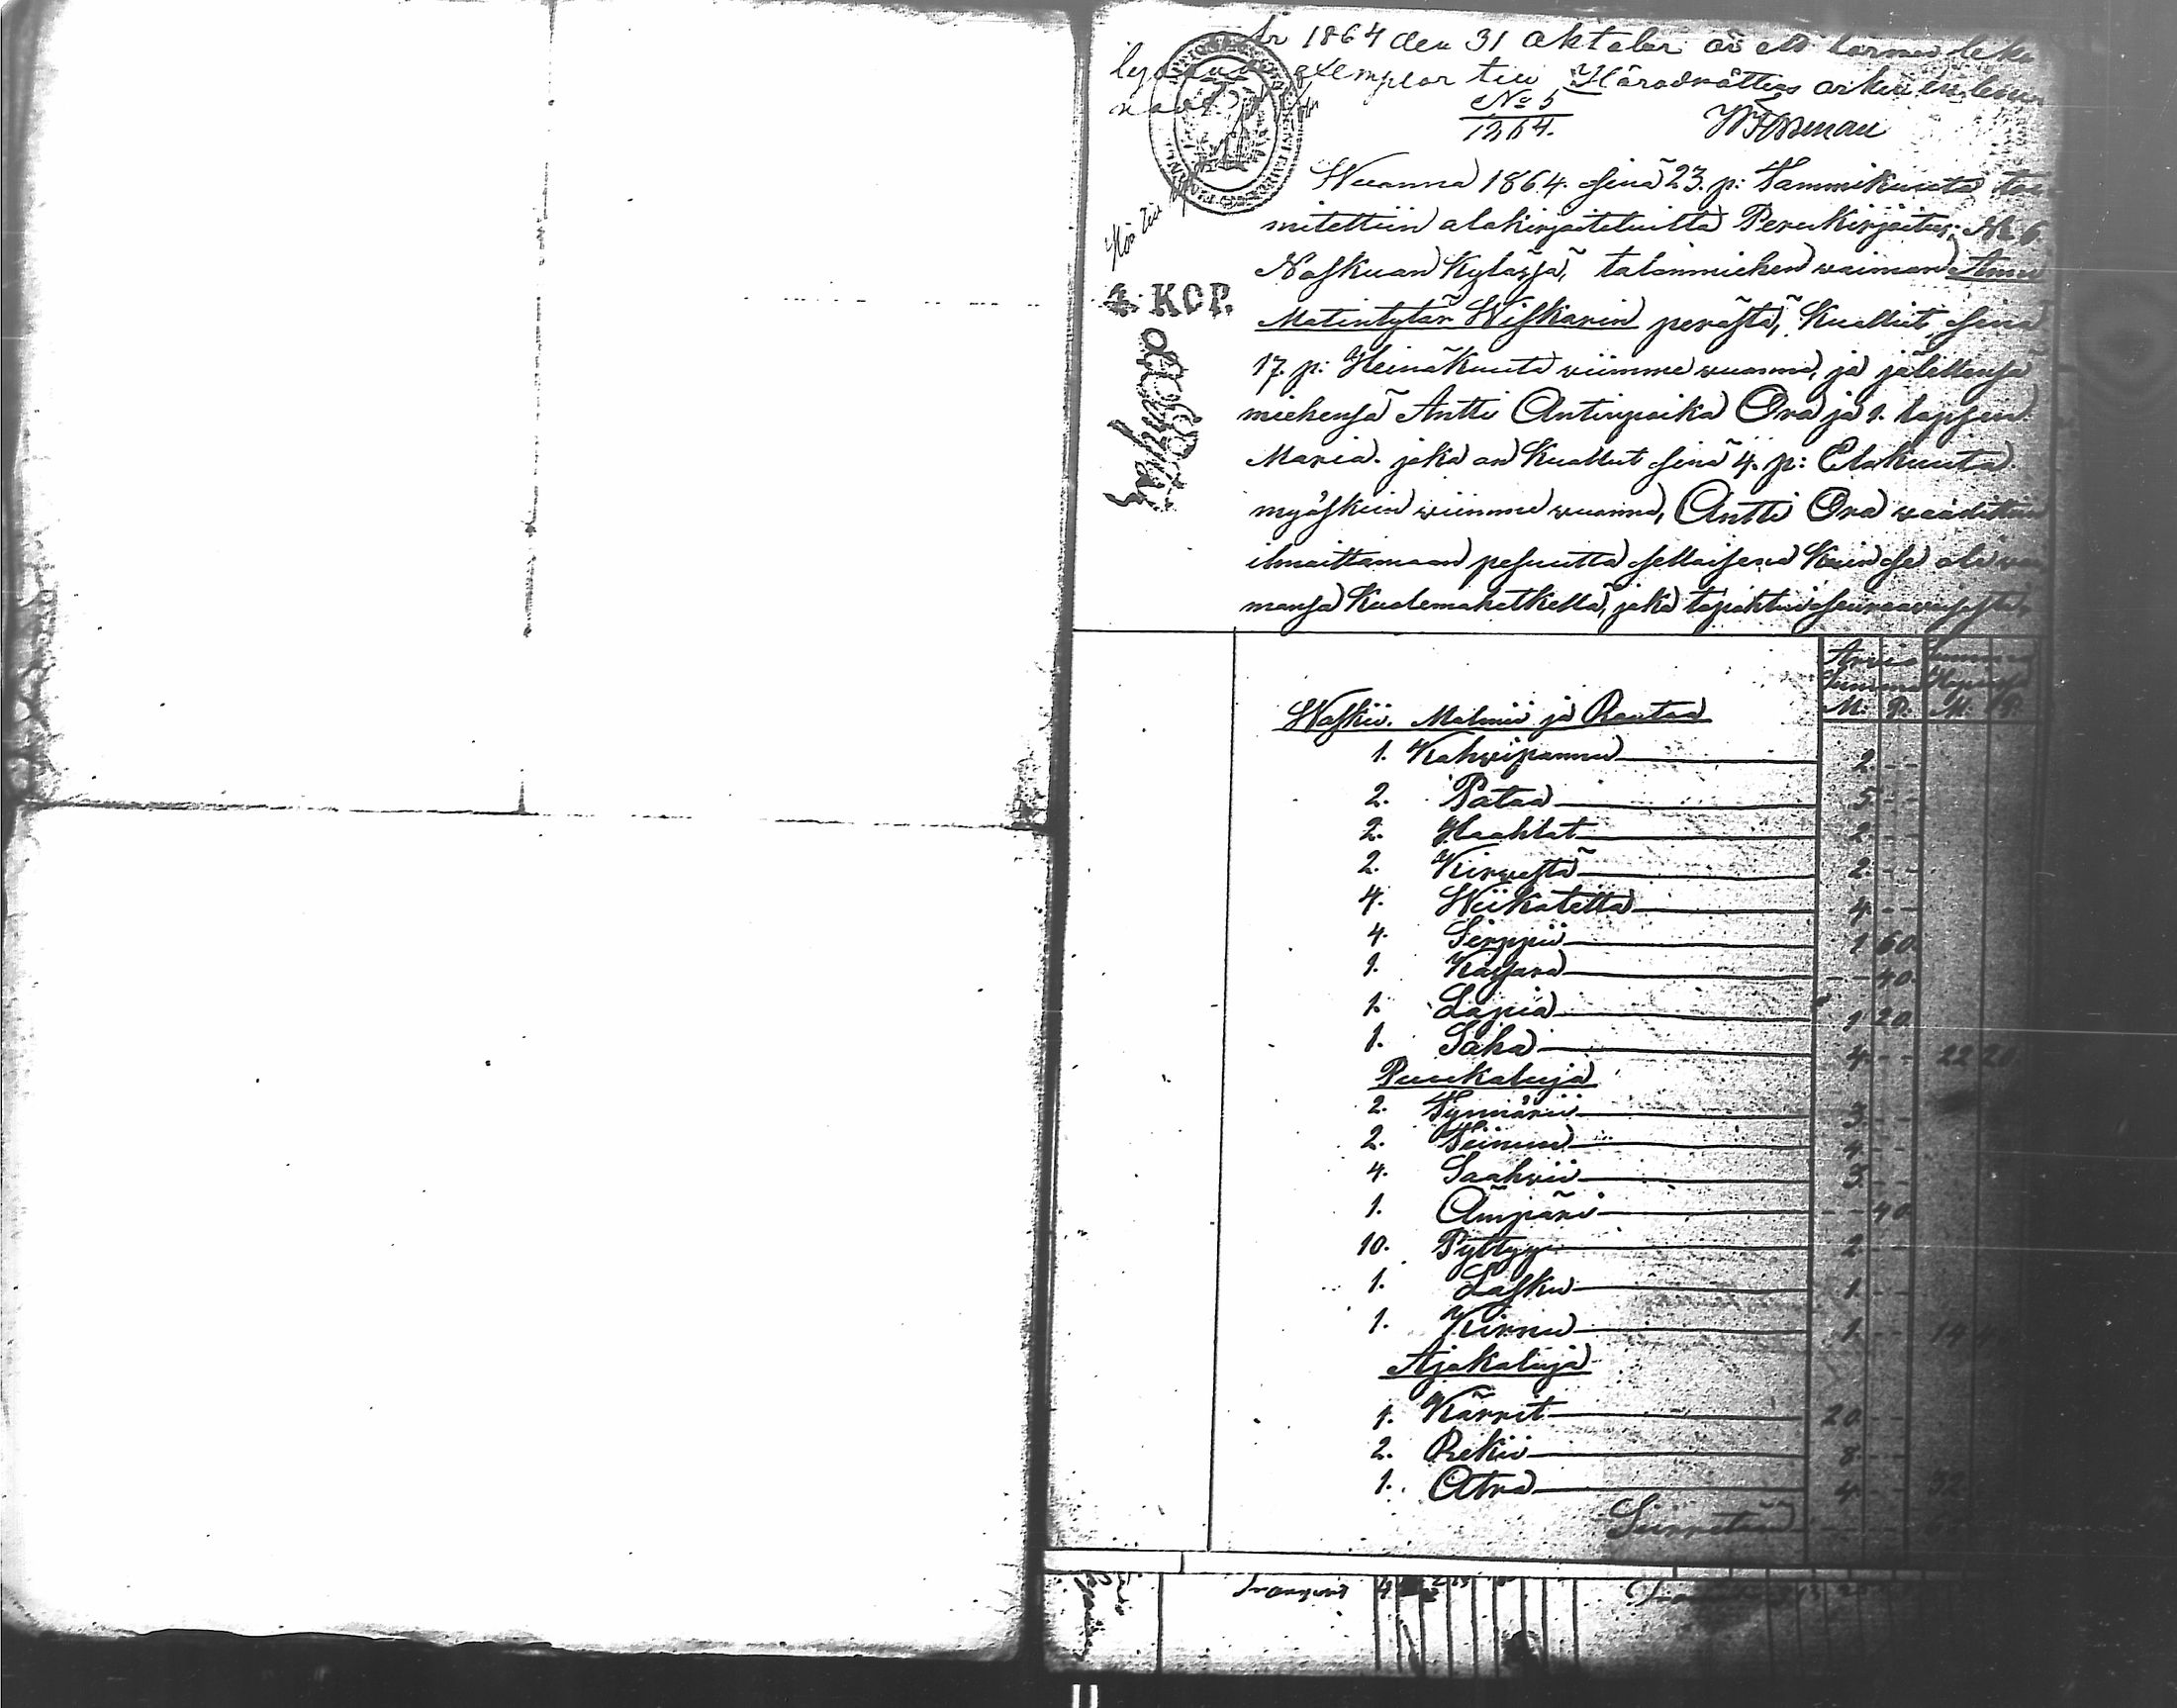 År 1864 den 31 Oktober är ett härmed lika
lydande exemplar till Häradsrättens arkiv inlem
nadt.
No 5
1864.
WForsman
4 KOP.
Wuonna 1864. sinä 23. p: Tammikuuta toi
mitettiin alakirjoitetuilta Perukirjoitus, No 6
Naskuan Kylässä, talonmiehen waimon Anna
Matintytär Wiskarin perästä, Kuollut sinä
17. p: Heinäkuuta wiimme wuonna, ja jälellensä
miehensä Antti Antinpoika Ora ja 1. lapsen
Maria. joka on Kuollut sinä 4. p: Elokuuta
myöskin wiimme wuonna, Antti Ora waadittiin
ilmoittamaan pesuutta sellaisena Kuin se oli wai
monsa Kuolemahetkellä, joka tapahtui seuraavasti,
Arvio Summa
M. P. M. P.
Waskii. Malmii ja Rautaa
1. Kahwipannu 2 - -
2. Pataa 5 - -
2. Haahlat 2 - -
2. Kirwestä 2 - -
4. Wiikatetta 4 - -
4. Sirppii 1 60
1. Kassara - - 40
1. Lapia 1 20
1. Saha 4 - - 22 20
Puukaluja
2. Tynnärii 3 - -
2. Tiinuu 4 - -
4. Saahwii 3 - -
1. Ämpäri - - 40
10. Pyttyy 2 - -
1. Lasku 1 - -
1. Kirnu 1 - - 14 4
Ajokaluja
1. Kärrit 20 - -
2. Rekii 8 - -
1. Atra 4 - - 32
Siirretään 6
Transport